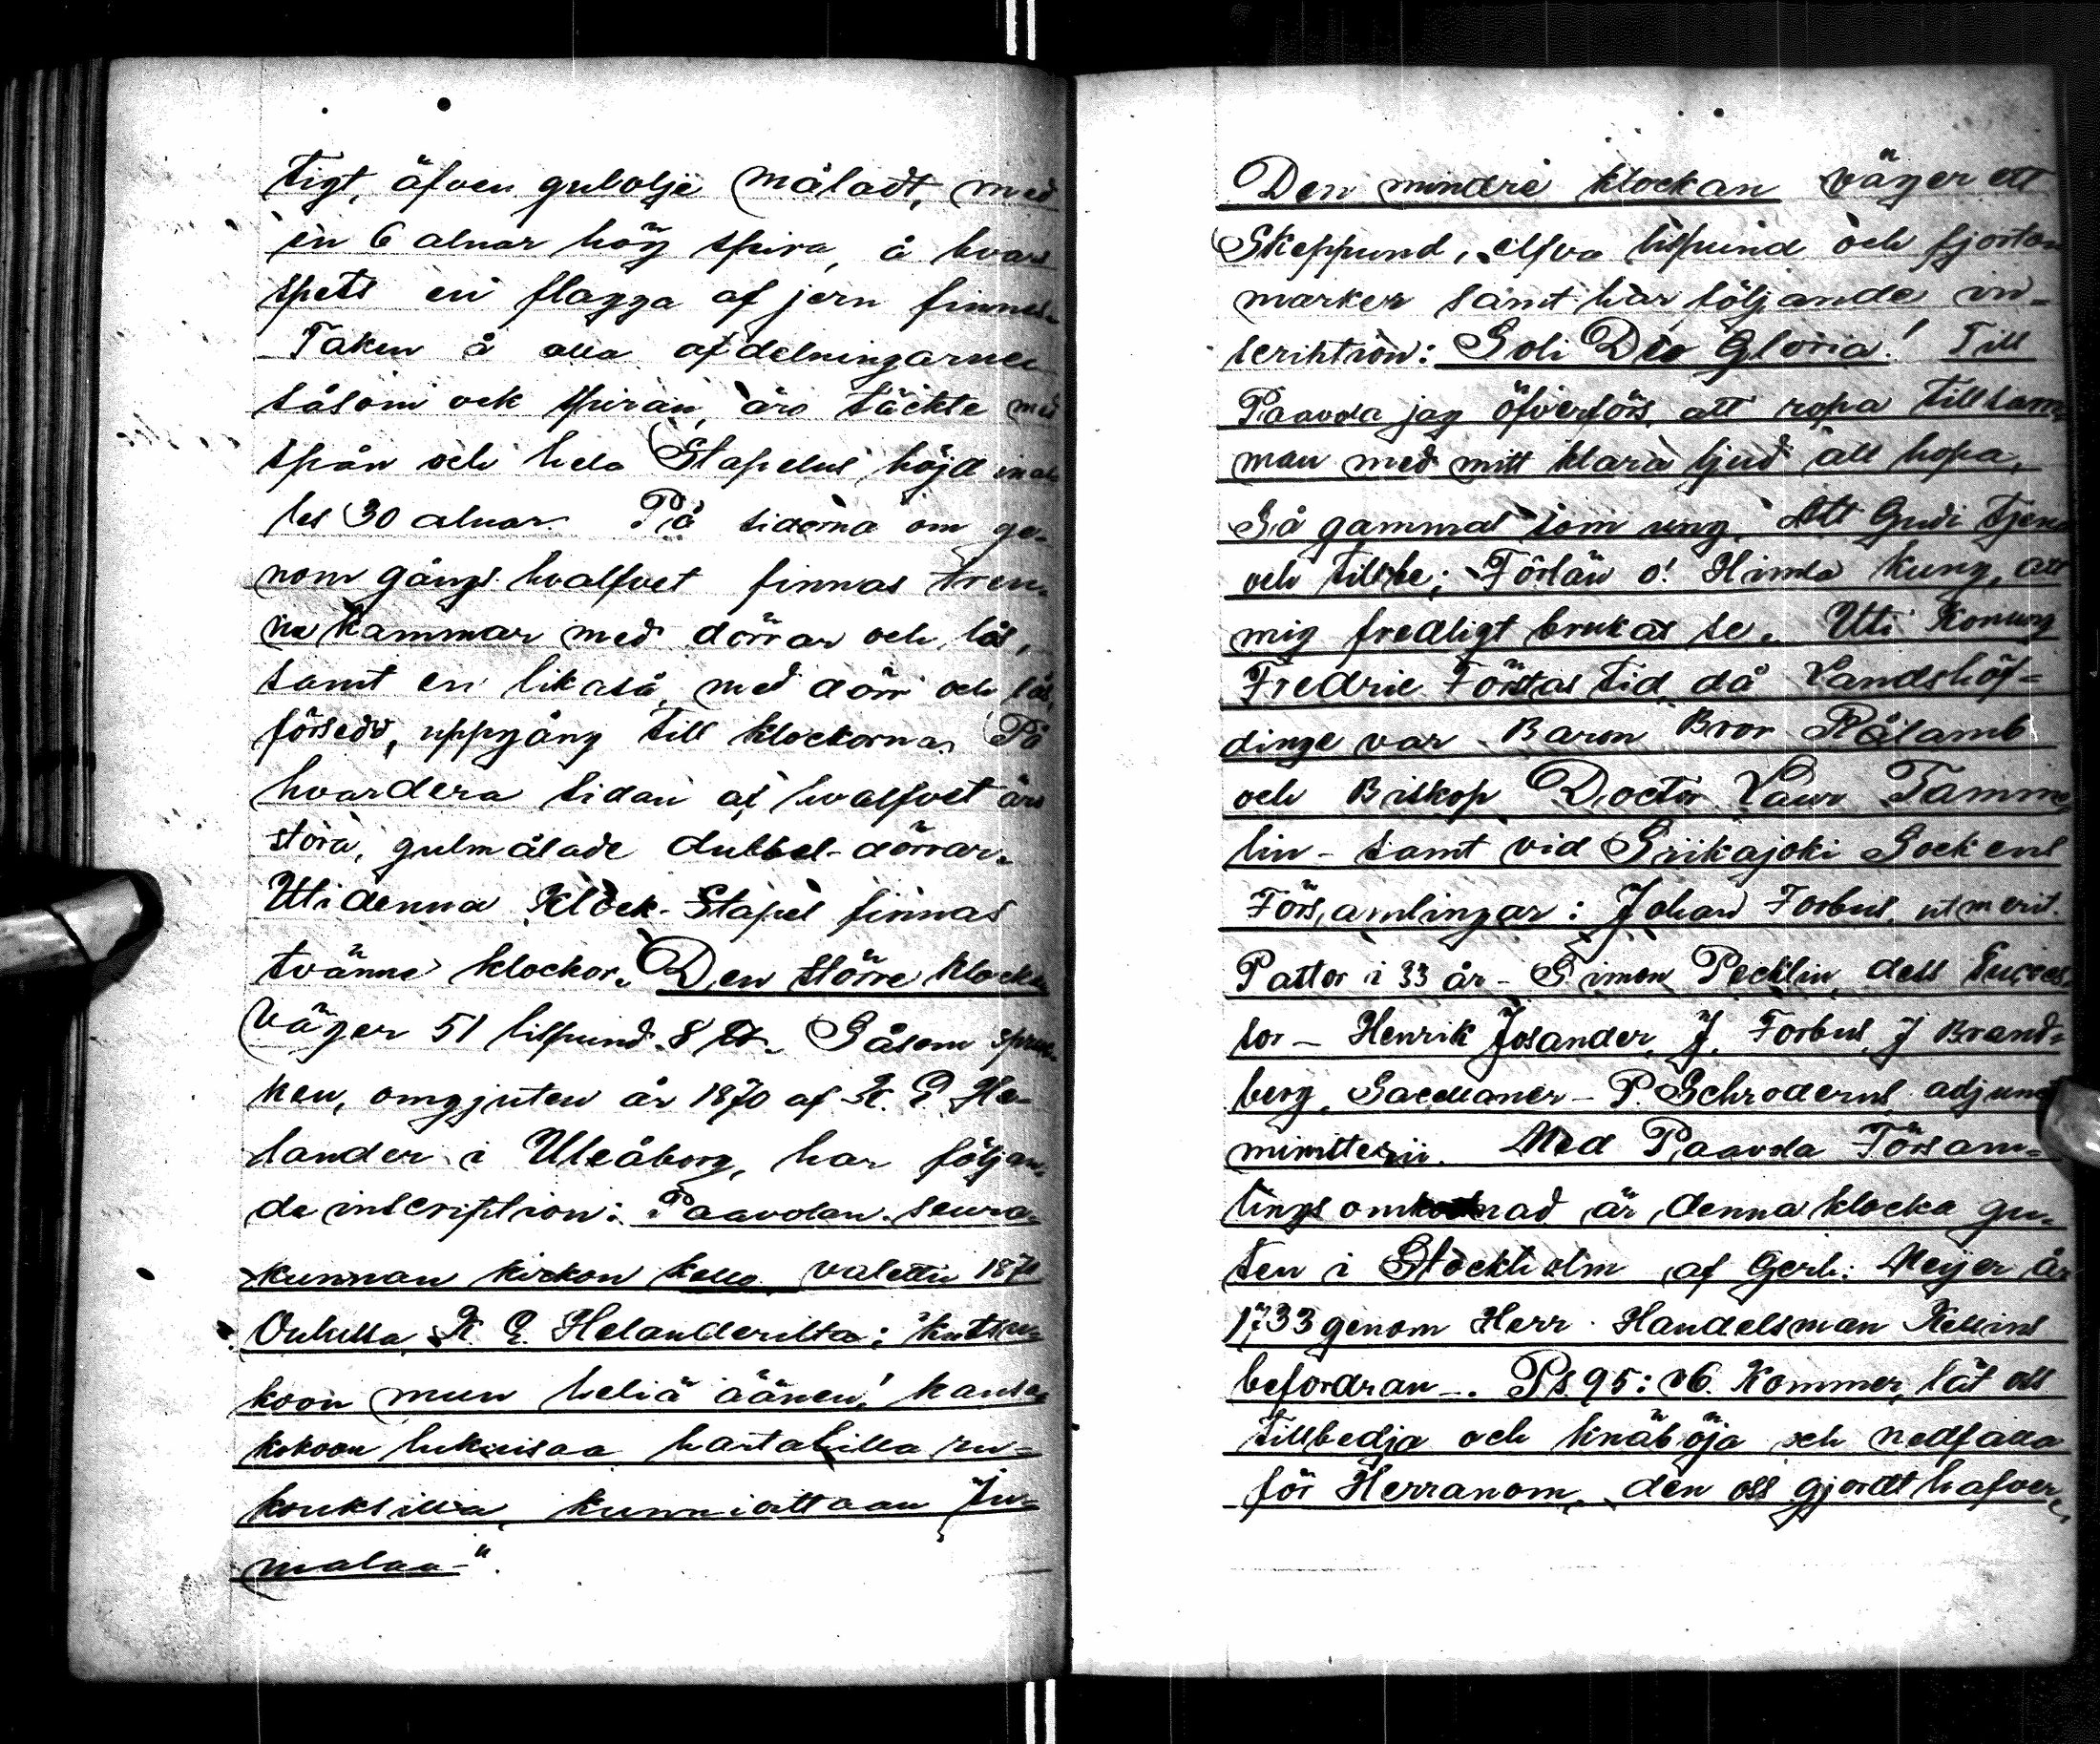 tigt, äfven gulolje måladt, med
en 6 alnar hög spira, å hvars
spets en flagga af jern finnes.
Taken å alla afdelningarne
såsom ock spiran, äro täckte med
spån och hela Stapelns höjd inal-
les 30 alnar. På sidorna om ge-
nom gångs hvalfvet finnas tren-
ne kammar med dörrar och lås,
samt en likaså, med dörr och lås,
försedd, uppgång till klockorna. På
hvardera sidan af hvalfvet äro
stora, gulmålade dubbel-dörrar.
Uti denna Klock-Stapel finnas
tvänne klockor. Den större klockan
väger 51 lispund 8 ℔. Såsom spruc-
ken, omgjuten år 1870 af K. E. He-
lander i Uleåborg, har följan-
de inscription: Paavolan seura-
kunnan kirkon kello valettu 1870
Oulussa K. E. Helanderilta; "kutsu-
koon mun heliä äänen! kansa
kokoon lukuisaa hartahilla ru-
kouksilla, kunnioittaan Ju-
malaa-".
Den mindre klockan väger ett
Skeppund, elfva lispund och fjorton
marker samt har följande in-
scrihtion: Soli Deo Gloria! Till
Paavola jag öfverförs, att ropa tillsam-
man med mitt klara ljud all hopa,
Så gammal som ung. Att Gudi tjena
och tillbe; Förlän o! Himla kung, att
mig fredligt brukas se. Uti Konung
Fredric Förstas tid då Landshöf-
dinge var Baron Bror Rålamb
och Biskop Doctor Laur Tamme
lin - samt vid Siikajoki Sockens
Församlingar: Johan Forbus, ut merit.
Pastor i 33 år - Simon Pecklin, dess Succes-
sor - Henrik Josander, J. Forbus, J Brand-
berg, Sacellaner - P. Schroderus, adjunct
ministerii. Med Paavola Försam-
lings omkostnad är denna klocka gu-
ten i Stockholm af Gerh: Meijer år
1733 genom Herr Handelsman
befordran -. Ps 95: v6. Kommer, låt oss
tillbedja och knäböja och nedfalla
för Herranom, den oss gjordt hafver,